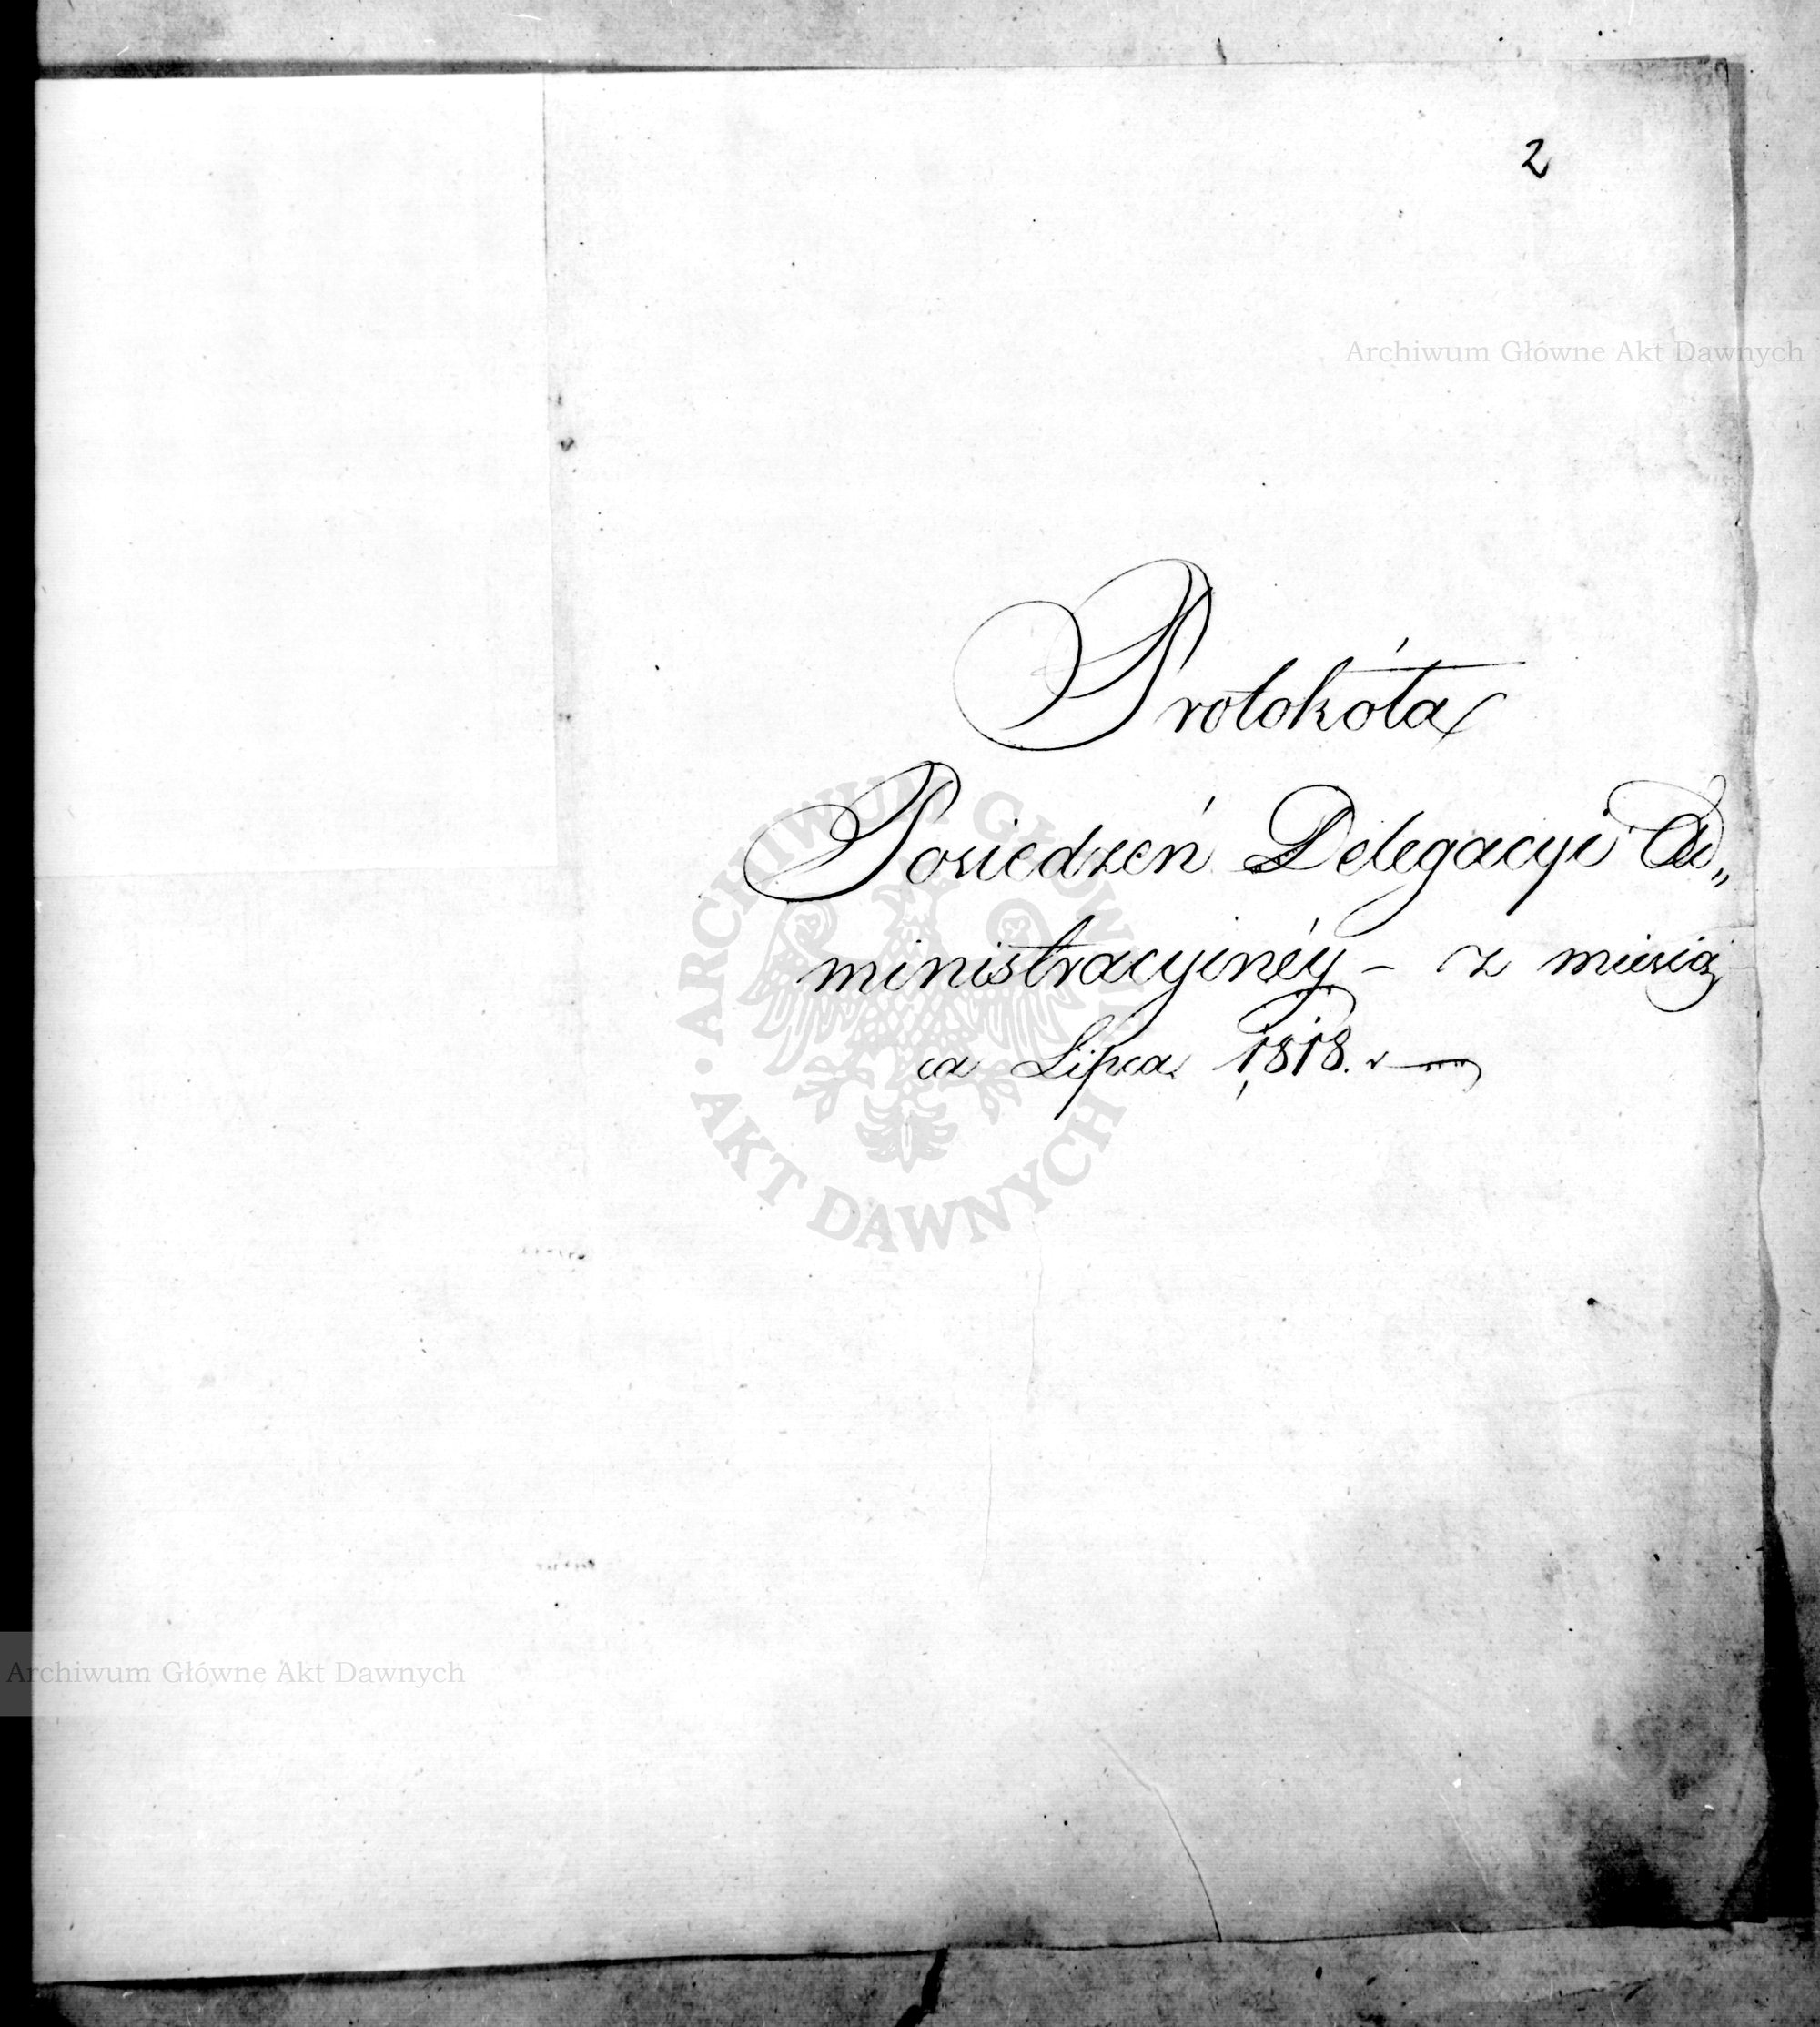 2
Archiwum Główne Akt Dawnych
Protokóła
Posiedzeń Delegacyi Ad„
ministracyinéy – z miesią
ca Lipca 1818. r
ARCHIWUM GŁÓWNE
AKT DAWNYCH
Archiwum Główne Akt Dawnych